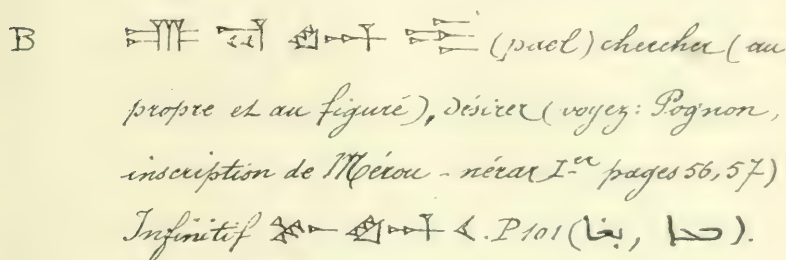 B 𒌑 𒁀 𒀪 𒄿 (pael) chercher (au
propre et au figuré), désirer (voyez: Pognon,
inscription de Mérou-nérar I-er pages 56, 57)
Infinitif 𒁍 𒀪 𒌋. P 101 (بغا, ܒܥܐ).